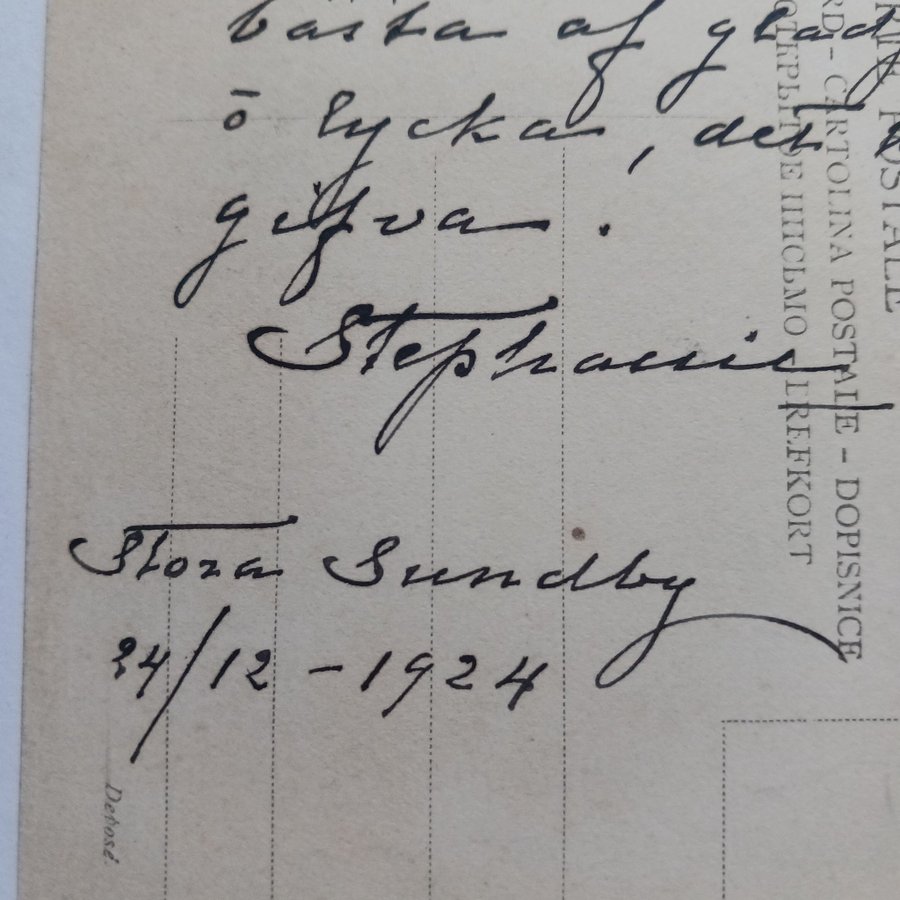 bästa af gläd
ō lycka, det
gifva!
Stephanie
Stora Sundby
24/12 - 1924
Deposé.
POSTALE
RD - CARTOLINA POSTALE - DOPISNICE
ОТКРЫТОЕ ПИСЬМО BREFKORT